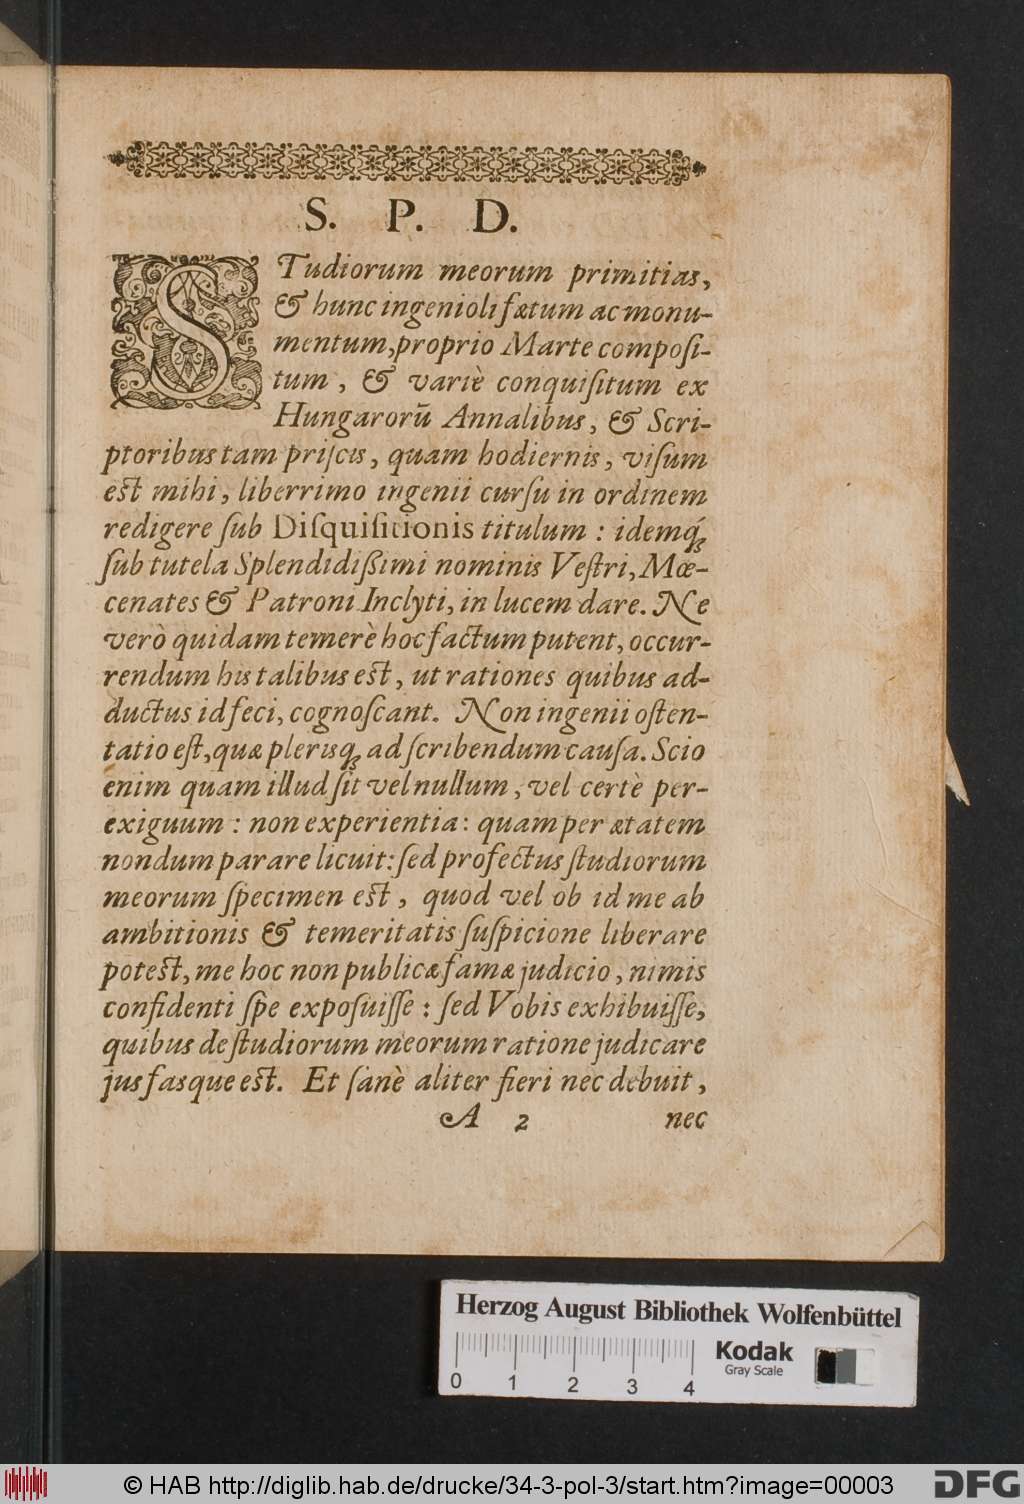 S. P. D.
STudiorum meorum primitias,
& hunc ingenioli fætum ac monu-
mentum, proprio Marte composi-
tum, & variè conquisitum ex
Hungarorū Annalibus, & Scri-
ptoribus tam priscis, quam hodiernis, visum
est mihi, liberrimo ingenii cursu in ordinem
redigere sub Disquisitionis titulum : idemq́;
sub tutela Splendidißimi nominis Vestri, Mœ-
cenates & Patroni Inclyti, in lucem dare. Ne
verò quidam temerè hoc factum putent, occur-
rendum his talibus est, ut rationes quibus ad-
ductus id feci, cognoscant. Non ingenii osten-
tatio est, quæ plerisq; ad scribendum causa. Scio
enim quam illud sit vel nullum, vel certè per-
exiguum : non experientia : quam per ætatem
nondum parare licuit: sed profectus studiorum
meorum specimen est, quod vel ob id me ab
ambitionis & temeritatis suspicione liberare
potest, me hoc non publicæ famæ judicio, nimis
confidenti spe exposuisse : sed Vobis exhibuisse,
quibus de studiorum meorum ratione judicare
jus fasque est. Et sanè aliter fieri nec debuit,
A 2 nec
Herzog August Bibliothek Wolfenbüttel
Kodak
Gray Scale
0 1 2 3 4
© HAB http://diglib.hab.de/drucke/34-3-pol-3/start.htm?image=00003
DFG